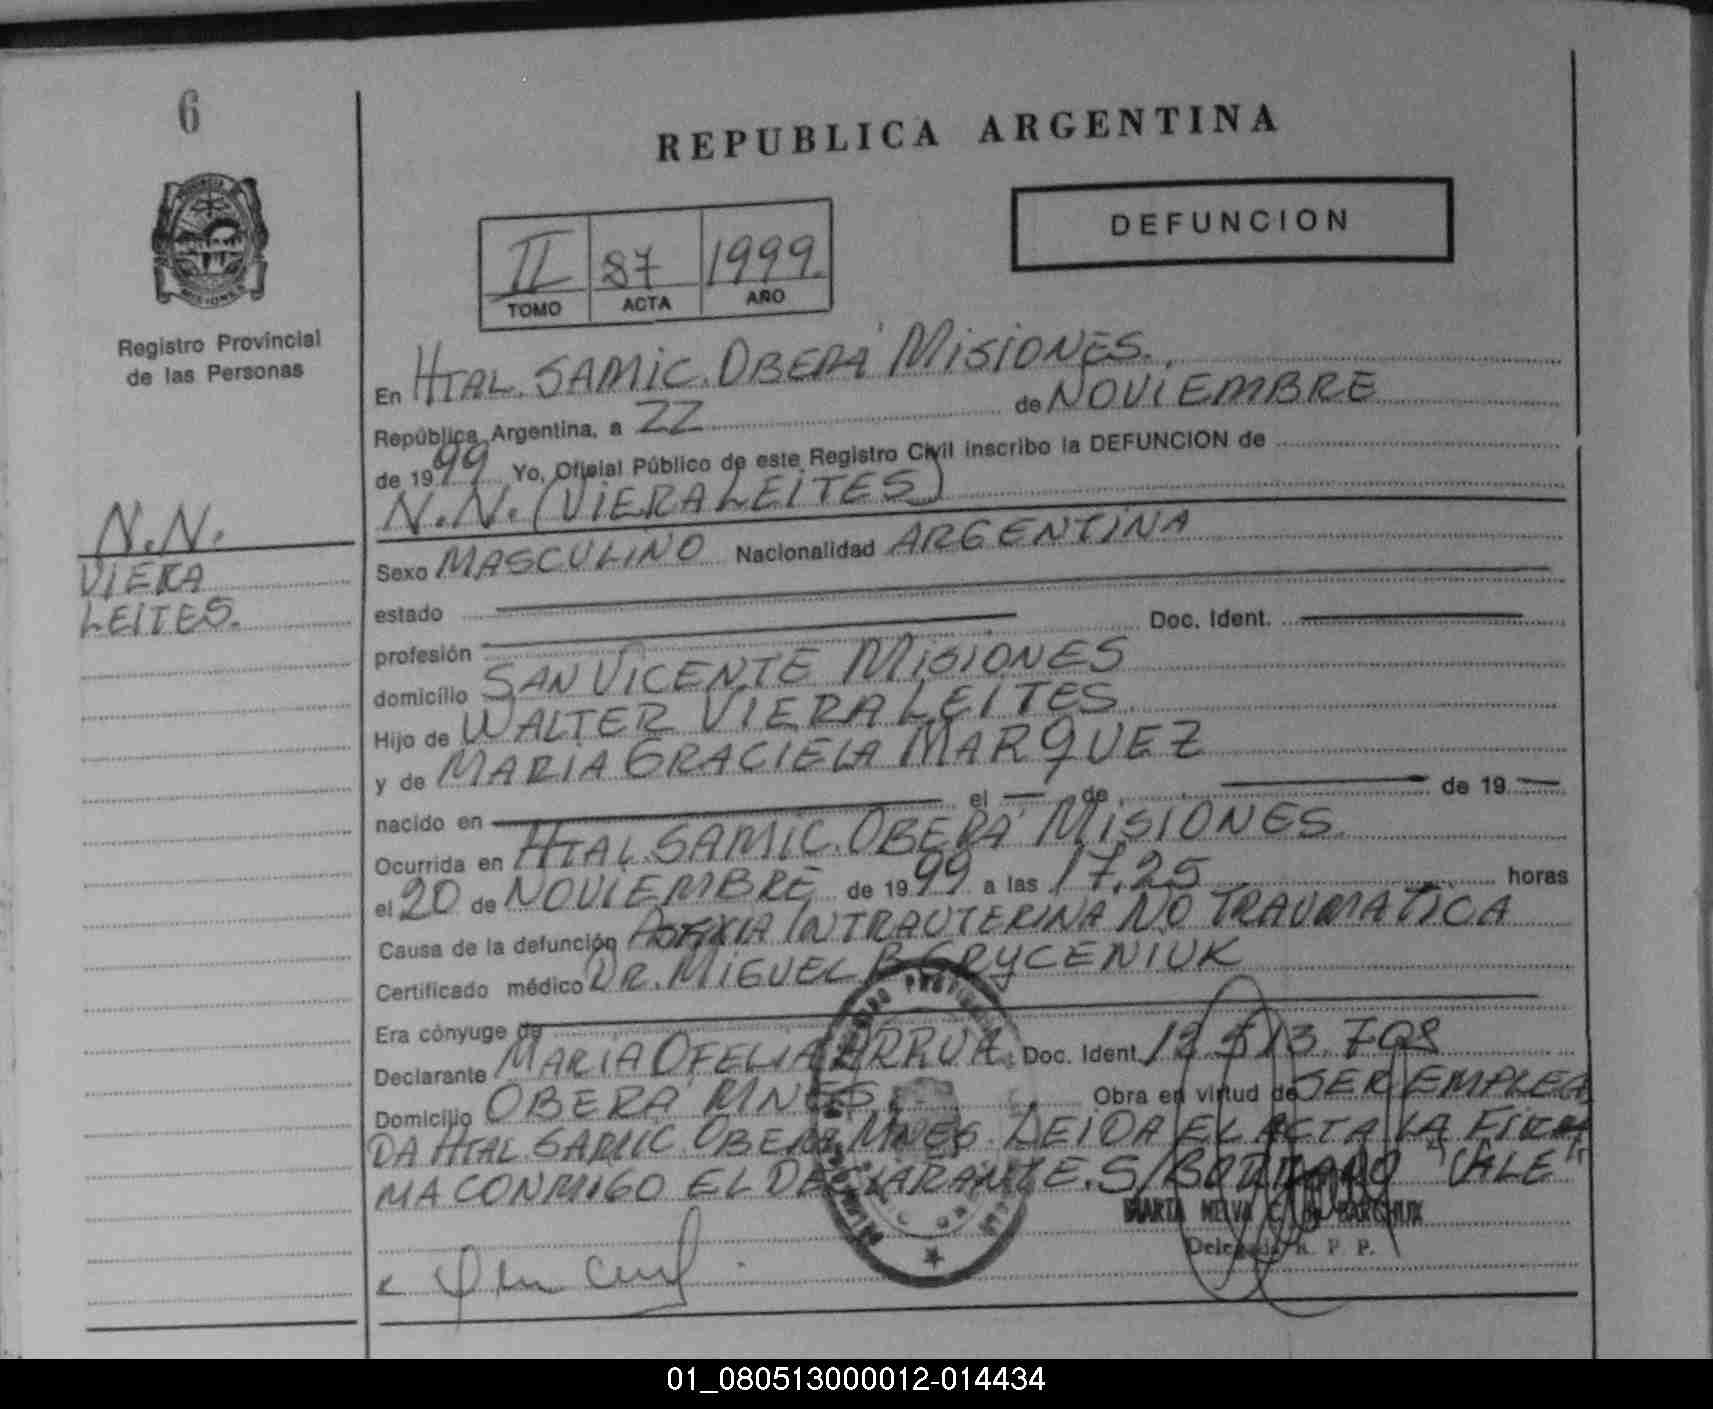 6
REPUBLICA ARGENTINA
DEFUNCION
II 87 1999
TOMO ACTA AÑO
MISIONES
Registro Provincial
de las Personas
En HTAL. SAMIC. OBERA MISIONES.
República Argentina, a 22 de NOVIEMBRE
de 1999 Yo, Oficial Público de este Registro Civil inscribo la DEFUNCION de
N.N. (VIERA LEITES)
N.N.
VIERA
LEITES.
Sexo MASCULINO Nacionalidad ARGENTINA
estado
profesión Doc. Ident.
domicilio SAN VICENTE MISIONES
Hijo de WALTER VIERA LEITES
y de MARIA GRACIELA MARQUEZ
nacido en el de de 19
Ocurrida en HTAL. SAMIC. OBERA MISIONES
el 20 de NOVIEMBRE de 1999 a las 17,25 horas
Causa de la defunción INTRAUTERINA NO TRAUMATICA
Certificado médico DR. MIGUEL B GRYCENIUK
Era cónyuge de
Declarante MARIA OFELIA ARRUA Doc. Ident.
Domicilio OBERA MNES. Obra en virtud de SER EMPLEA
DA HTAL SAMIC OBERA MNES. LEIDA EL ACTA LA FIR
MA CONMIGO EL DECLARANTE. S/BORRADO "VALE"
MARTA
Delegada R. P. P.
01_080513000012-014434